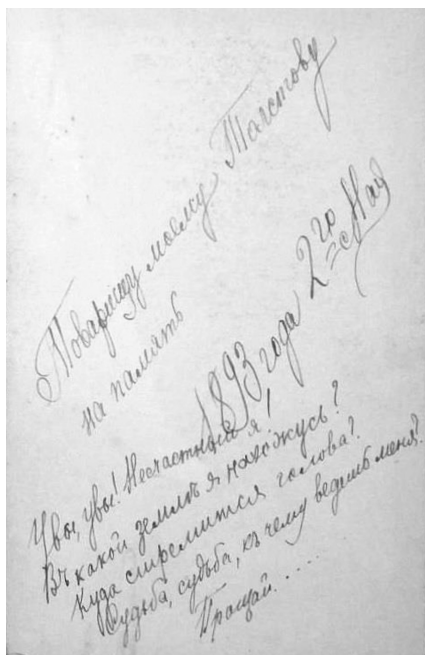 Товарищу моему Толстову
на память
1893 года 2го Мая
Увы, увы! Несчастный я!
Въ какой землѣ я нахожусь?
Куда стремится голова?
Судьба, судьба, къ чему ведешь меня?
Прощай.....